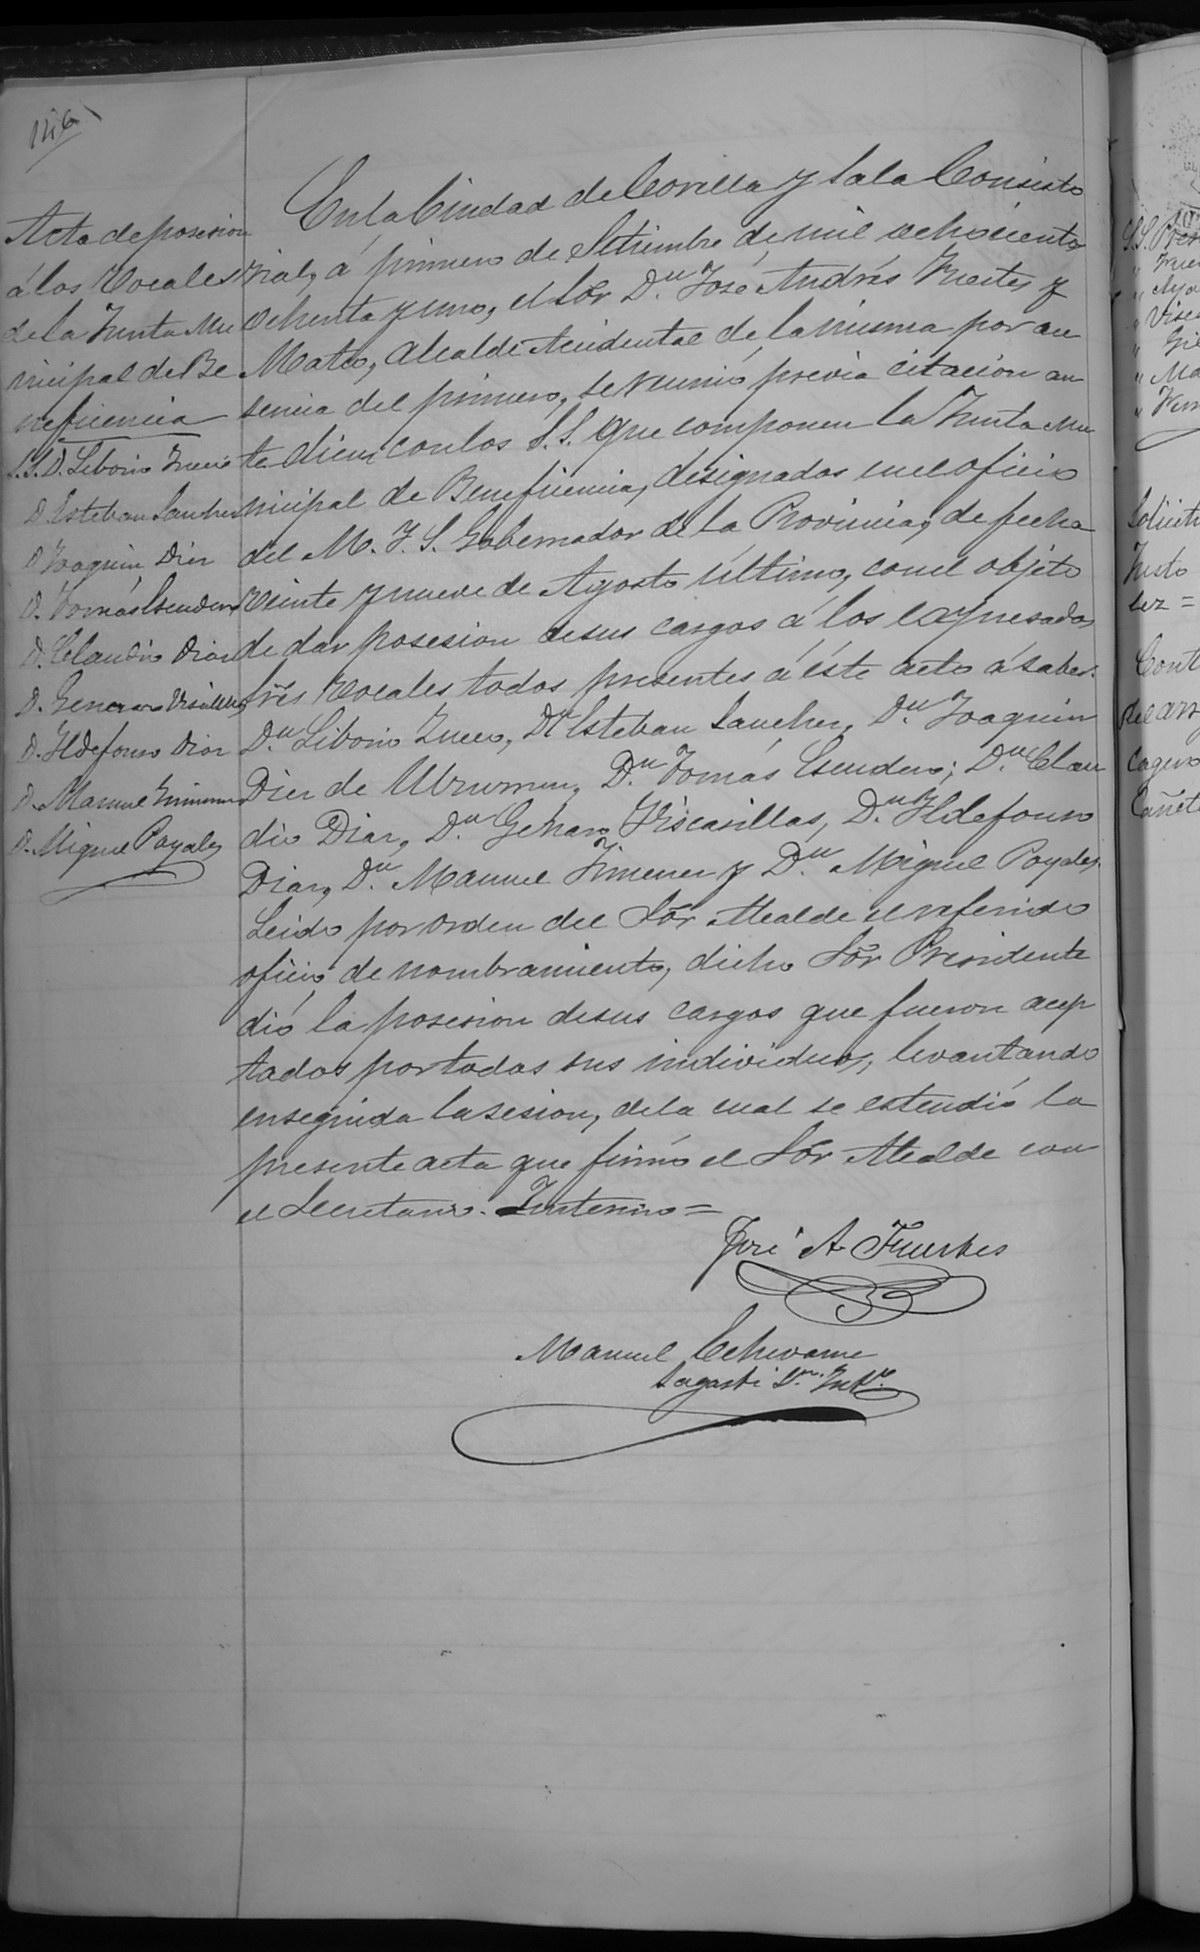 126
Acta de posesion
á los Vocales
de la Junta Mu
nicipal de Be
neficencia
S.S. D. Liborio
D. Esteban Sanchez
D. Joaquin Diez
D. Tomás Escudero
D. Claudio Diaz
D. Genaro Viscasillas
D. Yldefonso Diaz
D. Manuel Jimenez
D. Miguel Poyales
En la Ciudad de Corella y Sala Consisto
rial, á primero de Setiembre de mil ochocientos
ochenta y uno, el Sor Dn José Andrés Fuertes y
Mateo, Alcalde Accidental de la misma por au
sencia del primero, se reunió previa citacion an
te diem con los S.S. que componen la Junta Mu
nicipal de Beneficencia, designados en el oficio
del M. Y. S. Gobernador de la Provincia, de fecha
veinte y nueve de Agosto último, con el objeto
de dar posesion de sus cargos á los expresados
Sres Vocales todos presentes á éste acto á saber:
Dn Liborio Dn Esteban Sanchez, Dn Joaquin
Diez de Ulzurrun, Dn Tomás Escudero; Dn Clau
dio Diaz, Dn Genaro Viscasillas, Dn Yldefonso
Diaz, Dn Manuel Jimenez y Dn Miguel Poyales.
Leido por orden del Sor Alcalde el referido
oficio de nombramiento, dicho Sor Presidente
dió la posesion de sus cargos que fueron acep
tados por todos sus individuos, levantando
enseguida la sesion, de la cual se estendió la
presente acta que firmó el Sor Alcalde con
el Secretario. Interino=
José A Fuertes
Manuel Echevarne
Sagasti Srio. Intno.
S.S. Pres
Solicitu
Justo
lez =
Cont
del arr
Cañet